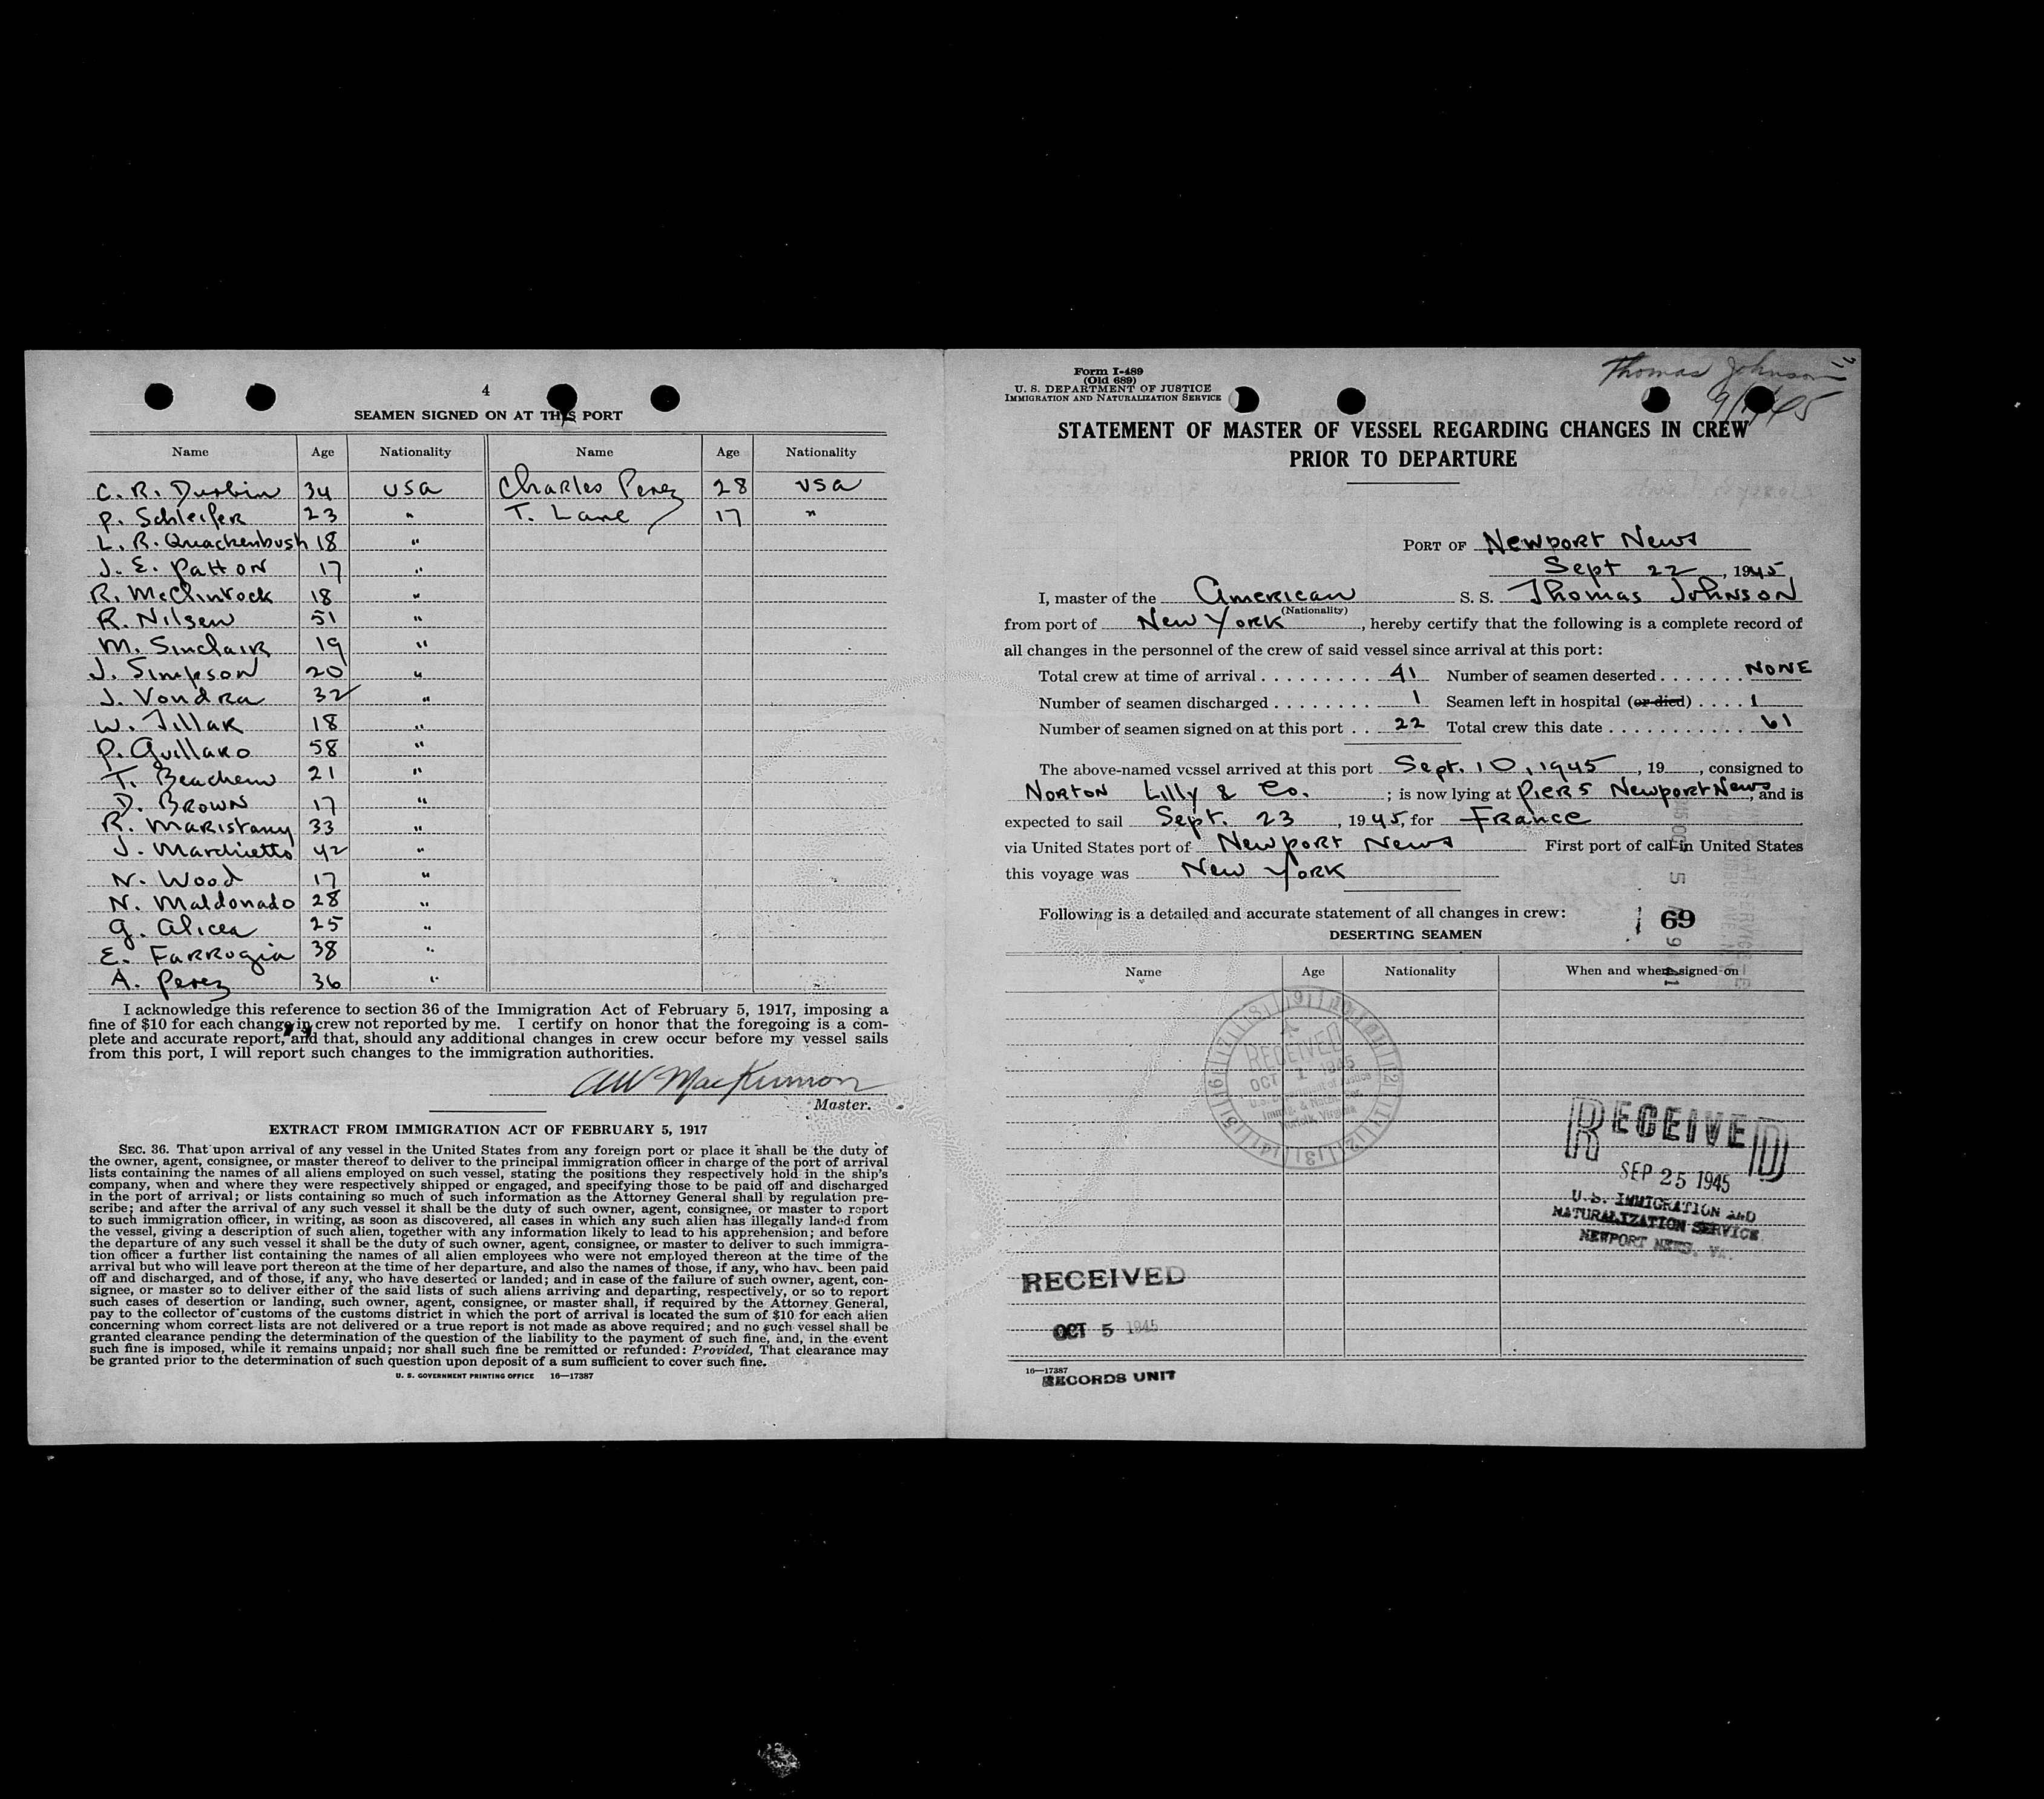 4
SEAMEN SIGNED ON AT THIS PORT
Name Age Nationality Name Age Nationality
C. R. Durbin 34 USA Charles Perez 28 USA
P. Schleifer 23 " T. Lane 17 "
L. R. Quackenbush 18 "
J. E. Patton 17 "
R. McClintock 18 "
R. Nilsen 51 "
M. Sinclair 19 "
J. Simpson 20 "
J. Vondra 32 "
W. Tillak 18 "
P. Guillaro 58 "
T. Beachem 21 "
D. Brown 17 "
R. Maristany 33 "
J. Marchietto 42 "
N. Wood 17 "
N. Maldonado 28 "
G. Alicea 25 "
E. Farrugia 38 "
A. Perez 36 "
I acknowledge this reference to section 36 of the Immigration Act of February 5, 1917, imposing a
fine of $10 for each change in crew not reported by me. I certify on honor that the foregoing is a com-
plete and accurate report, and that, should any additional changes in crew occur before my vessel sails
from this port, I will report such changes to the immigration authorities.
AW MacKinnon
Master.
EXTRACT FROM IMMIGRATION ACT OF FEBRUARY 5, 1917
SEC. 36. That upon arrival of any vessel in the United States from any foreign port or place it shall be the duty of
the owner, agent, consignee, or master thereof to deliver to the principal immigration officer in charge of the port of arrival
lists containing the names of all aliens employed on such vessel, stating the positions they respectively hold in the ship's
company, when and where they were respectively shipped or engaged, and specifying those to be paid off and discharged
in the port of arrival; or lists containing so much of such information as the Attorney General shall by regulation pre-
scribe; and after the arrival of any such vessel it shall be the duty of such owner, agent, consignee, or master to report
to such immigration officer, in writing, as soon as discovered, all cases in which any such alien has illegally landed from
the vessel, giving a description of such alien, together with any information likely to lead to his apprehension; and before
the departure of any such vessel it shall be the duty of such owner, agent, consignee, or master to deliver to such immigra-
tion officer a further list containing the names of all alien employees who were not employed thereon at the time of the
arrival but who will leave port thereon at the time of her departure, and also the names of those, if any, who have been paid
off and discharged, and of those, if any, who have deserted or landed; and in case of the failure of such owner, agent, con-
signee, or master so to deliver either of the said lists of such aliens arriving and departing, respectively, or so to report
such cases of desertion or landing, such owner, agent, consignee, or master shall, if required by the Attorney General,
pay to the collector of customs of the customs district in which the port of arrival is located the sum of $10 for each alien
concerning whom correct lists are not delivered or a true report is not made as above required; and no such vessel shall be
granted clearance pending the determination of the question of the liability to the payment of such fine, and, in the event
such fine is imposed, while it remains unpaid; nor shall such fine be remitted or refunded: Provided, That clearance may
be granted prior to the determination of such question upon deposit of a sum sufficient to cover such fine.
U. S. GOVERNMENT PRINTING OFFICE 16—17387
Form I-489
(Old 689)
U. S. DEPARTMENT OF JUSTICE
IMMIGRATION AND NATURALIZATION SERVICE
Thomas Johnson
STATEMENT OF MASTER OF VESSEL REGARDING CHANGES IN CREW
PRIOR TO DEPARTURE
PORT OF Newport News
Sept 22, 1945
I, master of the American S. S. Thomas Johnson
(Nationality)
from port of New York, hereby certify that the following is a complete record of
all changes in the personnel of the crew of said vessel since arrival at this port:
Total crew at time of arrival 41 Number of seamen deserted NONE
Number of seamen discharged 1 Seamen left in hospital (or died) 1
Number of seamen signed on at this port 22 Total crew this date 61
The above-named vessel arrived at this port Sept. 10, 1945, 19, consigned to
Norton Lilly & Co.; is now lying at Pier 5 Newport News, and is
expected to sail Sept. 23, 1945, for France
via United States port of Newport News First port of call in United States
this voyage was New York
Following is a detailed and accurate statement of all changes in crew:
69
DESERTING SEAMEN
Name Age Nationality When and where signed on
RECEIVED
OCT 1 1945
RECEIVED
SEP 25 1945
U.S. IMMIGRATION AND
NATURALIZATION SERVICE
NEWPORT NEWS, VA.
RECEIVED
OCT 5 1945
16—17387
RECORDS UNIT